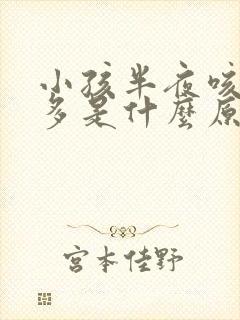 小孩半夜咳
多是什麼原
宮本佳野